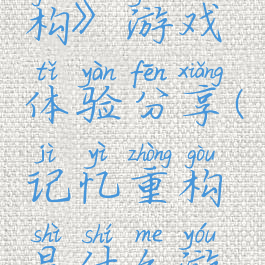 构》游戏
tǐ yàn fēn xiǎng
体验分享(
jì yì zhòng gòu
记忆重构
shì shí me yóu
是什么游